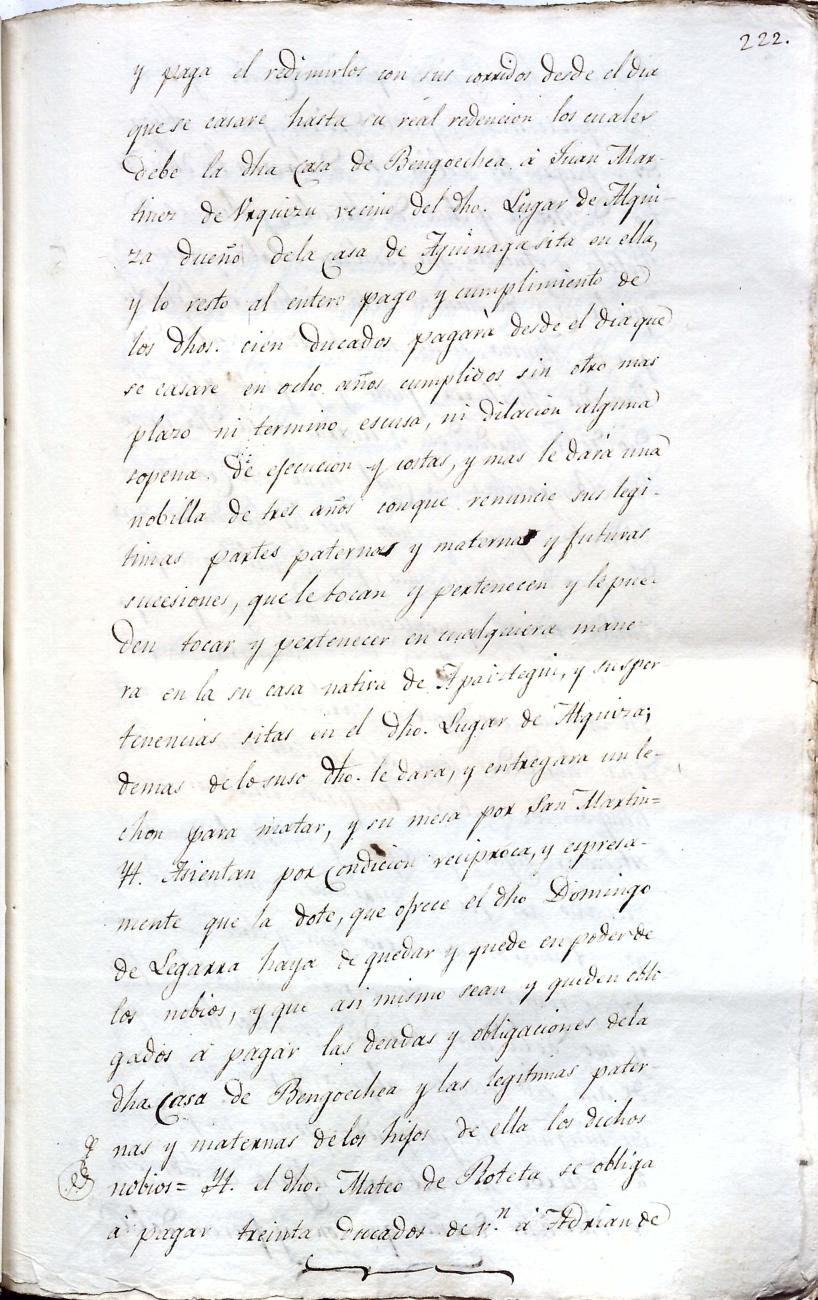 222.
y paga el redimirlos con sus corridos desde el dia
que se casare hasta su real redencion los cuales
debe la dha casa de Bengoechea à Juan Mar-
tinez de Vrquizu vecino del dho. Lugar de Alqui-
za dueño dela casa de Aguinaga sita en ella,
y lo resto al entero pago y cumplimiento de
los dhos. cien ducados pagarà desde el dia que
se casare en ocho años cumplidos sin otro mas
plazo ni termino, escusa, ni dilacion alguna
sopena de ejecucion y costas, y mas le dara una
nobilla de tres años conque renuncie sus legi-
timas partes paternas y maternas y futuras
sucesiones, que le tocan y pertenecen y le pue-
den tocar y pertenecer en cualquiera mane-
ra en la su casa nativa de Apaiztegui, y sus per-
tenencias sitas en el dho. Lugar de Alquiza;
demas de lo suso dho. le dara, y entregara un le-
chon para matar, y su mesa por San Martin=
Yt. Asientan por condicion reciproca, y espresa-
mente que la dote, que ofrece el dho Domingo
de Legarra haya de quedar y quede en poder de
los nobios, y que asi mismo sean y queden obli-
gados à pagar las deudas y obligaciones dela
dha casa de Bengoechea y las legitimas pater-
nas y maternas de los hijos de ella los dichos
nobios= Yt. el dho. Mateo de Roteta se obliga
à pagar treinta ducados de v.n à Adrian de